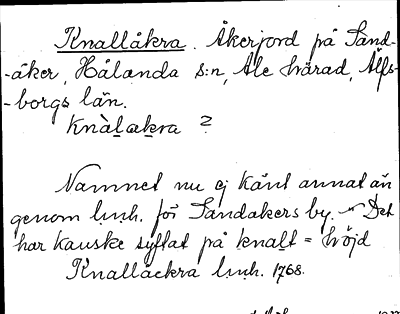 Knallåkra. Åkerjord på Sand-
-åker, Hålanda s:n, Ale härad, Älfs-
-borgs län.
Knàl̤ak̤ra ?
Namnet nu ej känt annat än
genom l.u.h. för Sandåkers by. Det
har kanske syftat på knalt = höjd
Knallåckra l.u.h. 1768.